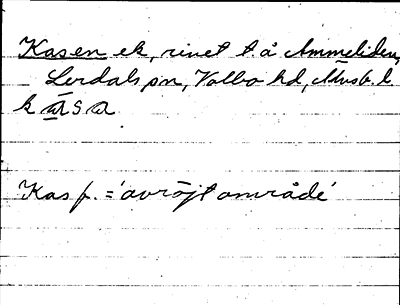 Kasen ek, rivet t å Ammeliden,
Lerdals sn, Valbo hd, Älvsb. l
k a s a
Kas f. = 'avröjt område'